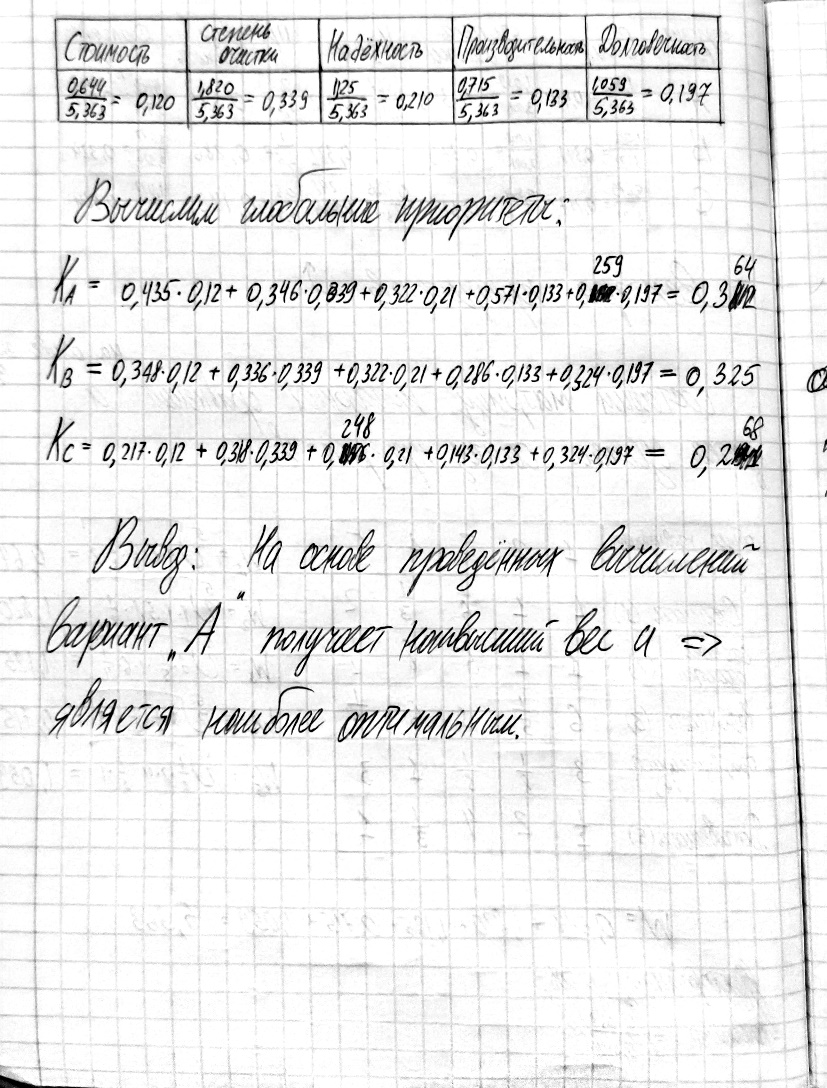 Стоимость степень очистки Надёжность Производительность Долговечность
0,644/5,363 = 0,120 1,820/5,363 = 0,339 1,125/5,363 = 0,210 0,715/5,363 = 0,133 1,059/5,363 = 0,197
Вычислим глобальные приоритеты:
K_A = 0,435·0,12 + 0,346·0,339 + 0,322·0,21 + 0,571·0,133 + 0,259·0,197 = 0,364
K_B = 0,348·0,12 + 0,336·0,339 + 0,322·0,21 + 0,286·0,133 + 0,324·0,197 = 0,325
K_C = 0,217·0,12 + 0,318·0,339 + 0,248·0,21 + 0,143·0,133 + 0,324·0,197 = 0,268
Вывод: На основе проведённых вычислений
вариант „А" получает наивысший вес и =>
является наиболее оптимальным.